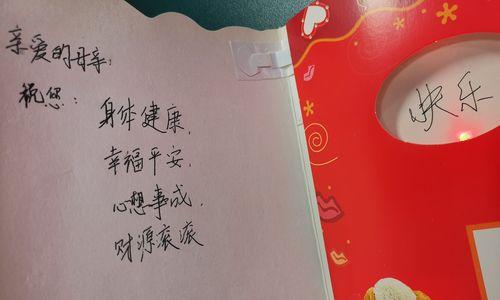 亲爱的母亲:
祝您:
身体健康,
幸福平安,
心想事成,
财源滚滚
快乐